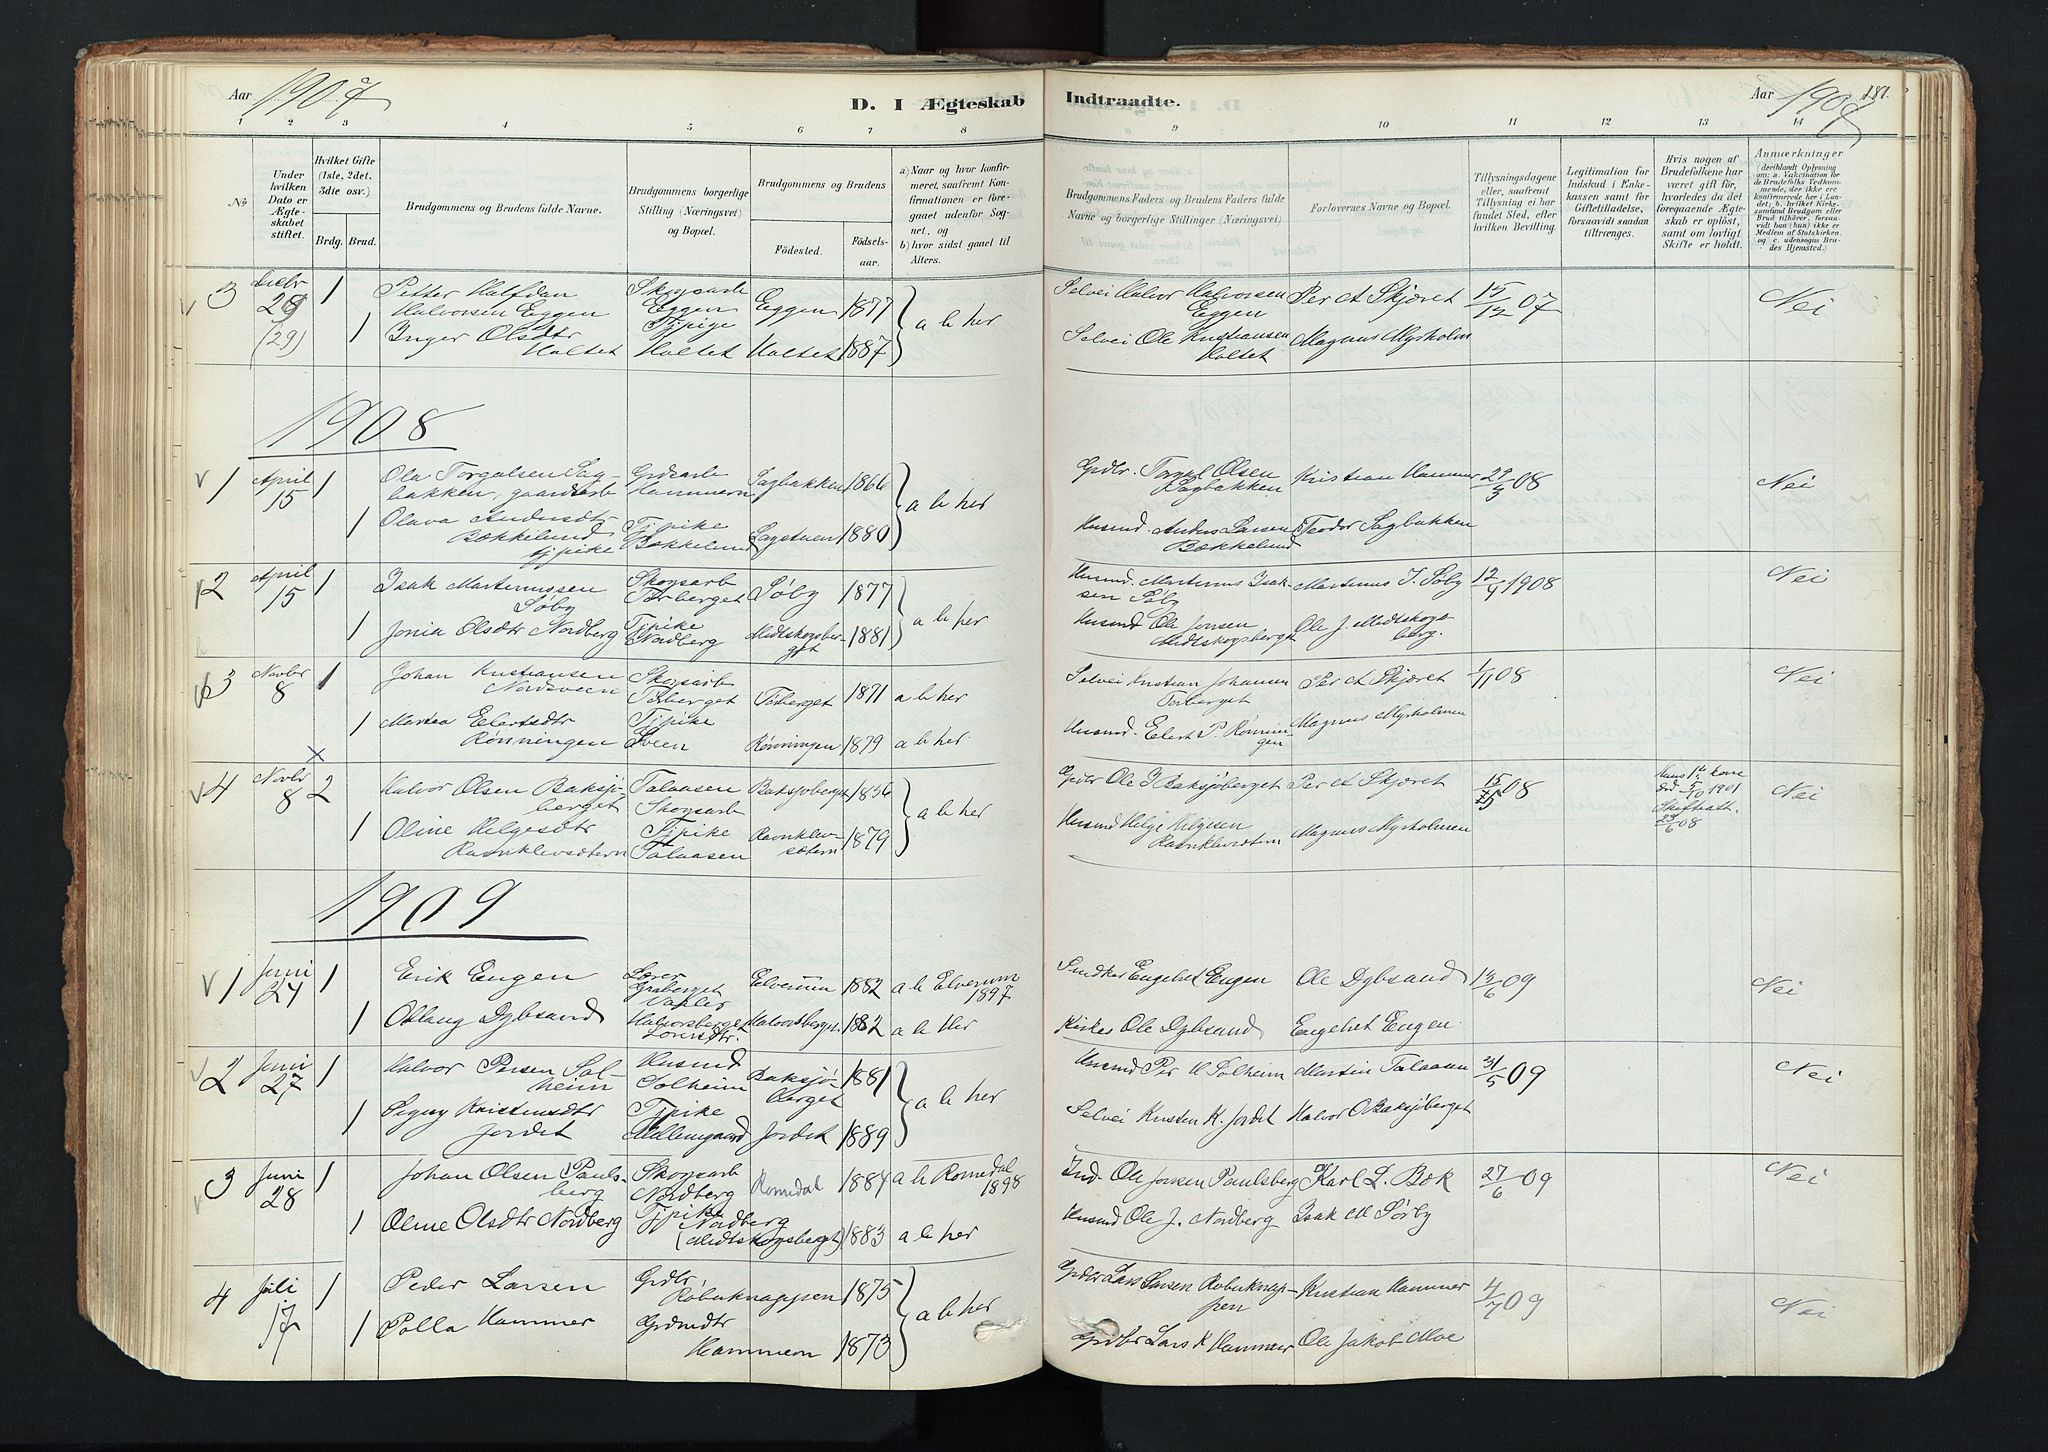 Aar 1907
D. I Ægteskab Indtraadte.
Aar 1908
181.
1 2 3 4 5 6 7 8 9 10 11 12 13 14
No
Under hvilken Dato er Ægteskabet stiftet.
Hvilket Gifte (1ste, 2det, 3die osv.)
Brdg. Brud.
Brudgommens og Brudens fulde Navne.
Brudgommens borgerlige Stilling (Næringsvei) og Bopæl.
Brudgommens og Brudens
Fødested.
Fødselsaar.
a) Naar og hvor konfirmeret, saafremt Konfirmationen er foregaaet udenfor Sognet, og
b) hvor sidst gaaet til Alters.
Brudgommens Faders og Brudens Faders fulde Navne og borgerlige Stillinger (Næringsvei)
Forlovernes Navne og Bopæl.
Tillysningsdagene eller, saafremt Tillysning ei har fundet Sted, efter hvilken Bevilling.
Legitimation for Indskud i Enkekassen samt for Giftetilladelse, forsaavidt saadan tiltrænges.
Hvis nogen af Brudefolkene har været gift før, hvorledes da det foregaaende Ægteskab er opløst, samt om lovligt Skifte er holdt.
Anmærkninger
3 Decbr 29 (29) 1 Petter Halfdan Halvorsen Eggen Skogsarb Eggen Eggen 1877 a b her Selvei Halvor Halvorsen Eggen Per A Skjæret 15/12 07 Nei
1 Inger Olsdtr Holtet Tjpige Holtet Holtet 1887 Selvei Ole Kristiansen Holtet Magnus Myrholm
1908
1 April 15 1 Ola Torgalsen Sagbakken, gaardsarb Grdsarb Hammern Sagbakken 1866 a b her Grdbr. Torgal Olsen Sagbakken Kristian Hammer 29/3 08 Nei
1 Olava Andersdtr Bækkelund tjpike Tjpike Bækkelund Sagstuen 1880 Husmd. Anders Larsen Bækkelund Teodor Sagbakken
2 April 15 1 Isak Martinussen Søby Skogsarb Torberget Søby 1877 a b her Husmd. Martinus Isaksen Søby Martinus I. Søby 12/4 1908 Nei
1 Jonia Olsdtr Nordberg Tjpike Nordberg Midtskogsberget 1881 Husmd Ole Jonsen Midtskogsberget Ole J. Midtskogsberg.
3 Novbr 8 1 Johan Kristiansen Nordsveen Skogsarb Torberget Torberget 1871 a b her Selvei Kristian Johansen Torberget Per A Skjæret 1/11 08 Nei
1 Martea Elertsdtr Rønningen Tjpike Sveen Rønningen 1879 a b her Husmd. Elert P. Rønningen Magnus Myrholmen
4 Novbr 8 2 Halvor Olsen Baksjøberget Talaasen Skogsarb Baksjøberget 1856 a b her Grdbr Ole Baksjøberget Per A Skjæret 15/ 08 Hans 1ste kone død 5/10 1901 Skifteatt. 23/6 08 Nei
1 Oline Helgesdtr Ravnklevsætern Tjpike Talaasen Ravnklevsætern 1879 Husmd Helge Helgesen Ravnklevsætern Magnus Myrholmen
1909
1 Juni 24 1 Erik Engen Lærer Graberget Vaaler Elverum 1882 a b Elverum 1897 Smedker Engebret Engen Ole Dybsand 13/6 09 Nei
1 Oslaug Dybsand Halvorsberget Lærerdtr. Halvorsberget 1882 a b Her Kirkes Ole Dybsand Engebret Engen
2 Juni 27 1 Halvor Persen Solheim Husmd Solheim Baksjøberget 1881 a b her Husmd Per H Solheim Martin Talaasen 31/5 09 Nei
1 Signy Kristensdtr Jordet Tjpike Mellemgaard Jordet 1889 Selvei Kristen K. Jordet Halvor O Baksjøberget
3 Juni 28 1 Johan Olsen Paulsberg Skogsarb Nordberg Romedal 1884 a b Romedal 1898 Ind. Ole Jonsen Paulsberg Karl L. Bæk 27/6 09 Nei
1 Oline Olsdtr Nordberg Tjpike Nordberg (Midtskogsberget) 1883 a b her Husmd Ole J. Nordberg Isak M Sørby
4 Juli 17 1 Peder Larsen Grdbr, Robuknappen 1875 a b her Grdbr Lars Larsen Robuknappen Kristian Hammer 4/7 09 Nei
1 Polla Hammer Grdmdtr Hammern 1873 Grdbr Lars K Hammer Ole Jakob Moe